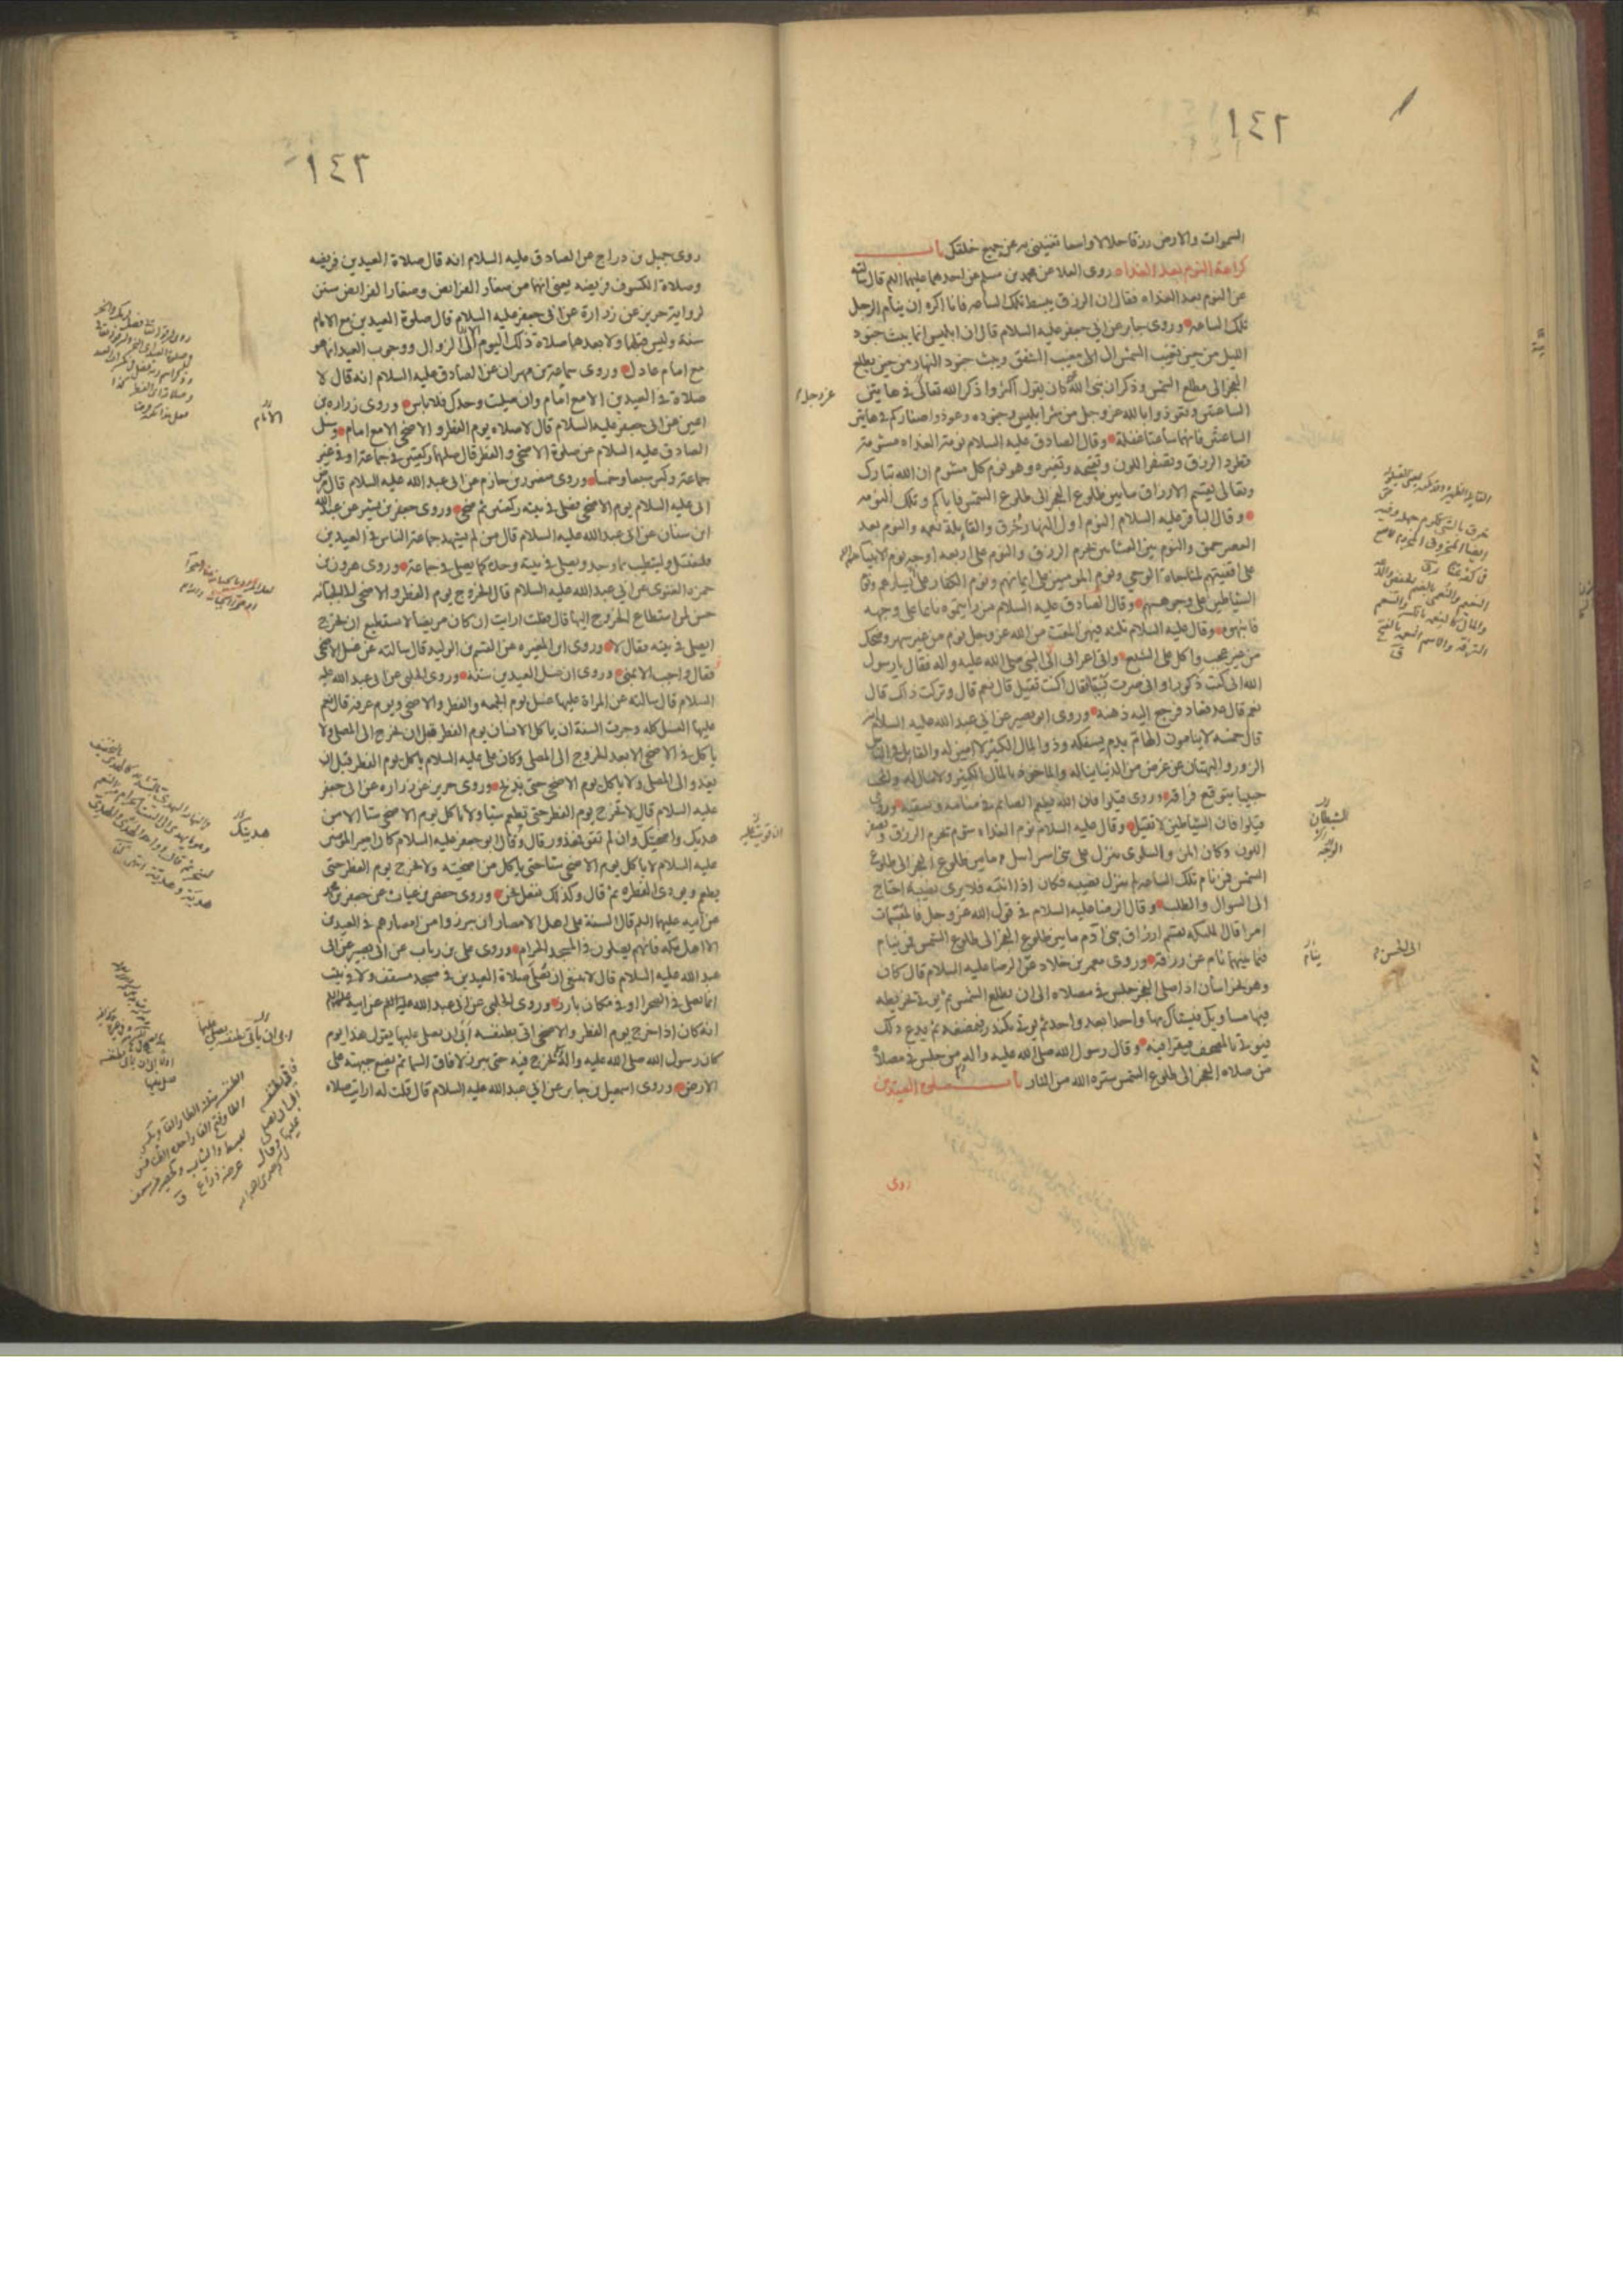 ١٤٢
السموات والارض رزقا حلالا واسعا تغنيني به عن جميع خلقك باب
كراهة النوم بعد الغداه روى العلا عن محمد بن مسلم عن احدهما عليهما السلم قال سالته
عن النوم بعد الغداه فقال ان الرزق يبسط تلك الساعه فانا اكره ان ينام الرجل
تلك الساعه وروى جابر عن ابي جعفر عليه السلام قال ان ابليس انما يبث جنود
الليل من حين تغيب الشمس الى مغيب الشفق ويبث جنود النهار من حين يطلع
الفجر الى مطلع الشمس وذكر ان نبي الله كان يقول اكثروا ذكر الله تعالى في هاتين
الساعتين وتعوذوا بالله عز وجل من شر ابليس وجنوده وعوذوا صغاركم في هاتين
الساعتين فانهما ساعتا غفلة وقال الصادق عليه السلام نومة الغداه مشومة
تطرد الرزق وتصفر اللون وتقبحه وتغيره وهو نوم كل مشوم ان الله تبارك
وتعالى يقسم الارزاق ما بين طلوع الفجر الى طلوع الشمس فاياكم وتلك النومه
وقال الباقر عليه السلام النوم اول النهار خرق والقايلة نعمه والنوم بعد
العصر حمق والنوم بين العشاءين يحرم الرزق والنوم على اربعه اوجه نوم الانبيا
على اقفيتهم لمناجاة الوحي ونوم المومنين على ايمانهم ونوم الكفار على يسارهم ونوم
الشياطين على وجوههم وقال الصادق عليه السلام من رايتموه نائما على وجهه
فانبهوه وقال عليه السلام ثلثه فيهن المقت من الله عز وجل نوم من غير سهر وضحك
من غير عجب واكل على الشبع واتى اعرابي الى النبي صلى الله عليه واله فقال يا رسول
الله اني كنت ذكورا واني صرت نسيا فقال اكنت تقيل قال نعم قال وتركت ذاك قال
نعم قال عد فعاد فرجع اليه ذهنه وروى ابو بصير عن ابي عبد الله عليه السلام
قال خمسه لا ينامون الهام بدم يسفكه وذو المال الكثير لا امين له والقايل في الناس
الزور والبهتان عن عرض من الدنيا يناله والماخوذ بالمال الكثير ولا مال له والمحب
حبيبا يتوقع فراقه وروى قيلوا فان الله يطعم الصايم في منامه ويسقيه وروى
قيلوا فان الشياطين لا تقيل وقال عليه السلام نوم الغداه شوم يحرم الرزق ويصفر
اللون وكان المن والسلوى ينزل على بني اسرائيل ما بين طلوع الفجر الى طلوع
الشمس فمن نام تلك الساعه لم ينزل نصيبه فكان اذا انتبه فلا يرى نصيبه احتاج
الى السوال والطلب وقال الرضا عليه السلام في قول الله عز وجل فالمقسمات
امرا قال الملئكه تقسم ارزاق بني آدم ما بين طلوع الفجر الى طلوع الشمس فمن ينام
فيما بينهما نام عن رزقه وروى معمر بن خلاد عن الرضا عليه السلام قال كان
وهو بخراسان اذا صلى الفجر جلس في مصلاه الى ان يطلع الشمس ثم يوتى بخريطه
فيها مساويك فيستاك بها واحدا بعد واحد ثم يوتى بكندر فيمضغه ثم يدع ذلك
فيوتى بالمصحف فيقرا فيه وقال رسول الله صلى الله عليه واله من جلس في مصلاه
من صلاه الفجر الى طلوع الشمس ستره الله من النار باب صلوة العيدين
روى
عز وجل
الشيطان
الوجه
الى الحسن
ينام
١٤٣
روى جميل بن دراج عن الصادق عليه السلام انه قال صلاة العيدين فريضه
وصلاة الكسوف فريضه يعني انهما من صغار الفرائض وصغار الفرائض سنن
لرواية حريز عن زرارة عن ابي جعفر عليه السلام قال صلوة العيدين مع الامام
سنة وليس قبلهما ولا بعدهما صلاة ذلك اليوم الى الزوال ووجوب العيد انما هو
مع امام عادل وروى سماعة بن مهران عن الصادق عليه السلام انه قال لا
صلاة في العيدين الا مع امام وان صليت وحدك فلا باس وروى زراره بن
اعين عن ابي جعفر عليه السلام قال لا صلاه يوم الفطر والاضحى الا مع امام وسئل
الصادق عليه السلام عن صلوة الاضحى والفطر قال صلهما ركعتين في جماعة او في غير
جماعة وكبر سبعا وخمسا وروى منصور بن حازم عن ابي عبد الله عليه السلام قال مرض
ابي عليه السلام يوم الاضحى فصلى في بيته ركعتين ثم ضحى وروى جعفر بن بشير عن عبد الله
ابن سنان عن ابي عبد الله عليه السلام قال من لم يشهد جماعة الناس في العيدين
فليغتسل وليتطيب بما وجد ويصلي في بيته وحده كما يصلي في جماعة وروى هرون بن
حمزه الغنوى عن ابي عبد الله عليه السلام قال الخروج يوم الفطر والاضحى الى الجبانه
حسن لمن استطاع الخروج اليها قال فقلت ارايت ان كان مريضا لا يستطيع ان يخرج
ايصلي في بيته فقال لا وروى ابن المغيره عن القسم بن الوليد قال سالته عن غسل الاضحى
فقال واجب الا بمنى وروى ان غسل العيدين سنة وروى الحلبي عن ابي عبد الله عليه
السلام قال سالته عن المراة عليها غسل يوم الجمعه والفطر والاضحى ويوم عرفة قال نعم
عليها الغسل كله وجرت السنة ان ياكل الانسان يوم الفطر قبل ان يخرج الى المصلى ولا
ياكل في الاضحى الا بعد الخروج الى المصلى وكان علي عليه السلام ياكل يوم الفطر قبل ان
يغدو الى المصلى ولا ياكل يوم الاضحى حتى يذبح وروى حريز عن زراره عن ابي جعفر
عليه السلام قال لا تخرج يوم الفطر حتى تطعم شيا ولا تاكل يوم الاضحى شيا الا من
هديك واضحيتك وان لم تقو فمعذور قال وقال ابو جعفر عليه السلام كان امير المومنين
عليه السلام لا ياكل يوم الاضحى شيا حتى ياكل من اضحيته ولا يخرج يوم الفطر حتى
يطعم ويودى الفطره ثم قال وكذلك نفعل نحن وروى حفص بن غياث عن جعفر بن محمد
عن ابيه عليهما السلم قال السنة على اهل الامصار ان يبرزوا من امصارهم في العيدين
الا اهل مكه فانهم يصلون في المسجد الحرام وروى علي بن رياب عن ابي بصير عن ابي
عبد الله عليه السلام قال لا ينبغي ان يصلى صلاة العيدين في مسجد مسقف ولا في بيت
انما يصلى في الصحرا او في مكان بارز وروى الحلبي عن ابي عبد الله عليه السلم عن ابيه عليهما السلم
انه كان اذا خرج يوم الفطر والاضحى اتى بطنفسه ابى ان يصلي عليها يقول هذا يوم
كان رسول الله صلى الله عليه واله يخرج فيه حتى يبرز لافاق السما ثم يضع جبهته على
الارض وروى اسمعيل بن جابر عن ابي عبد الله عليه السلام قال قلت له ارايت صلاه
الامام
هديتك